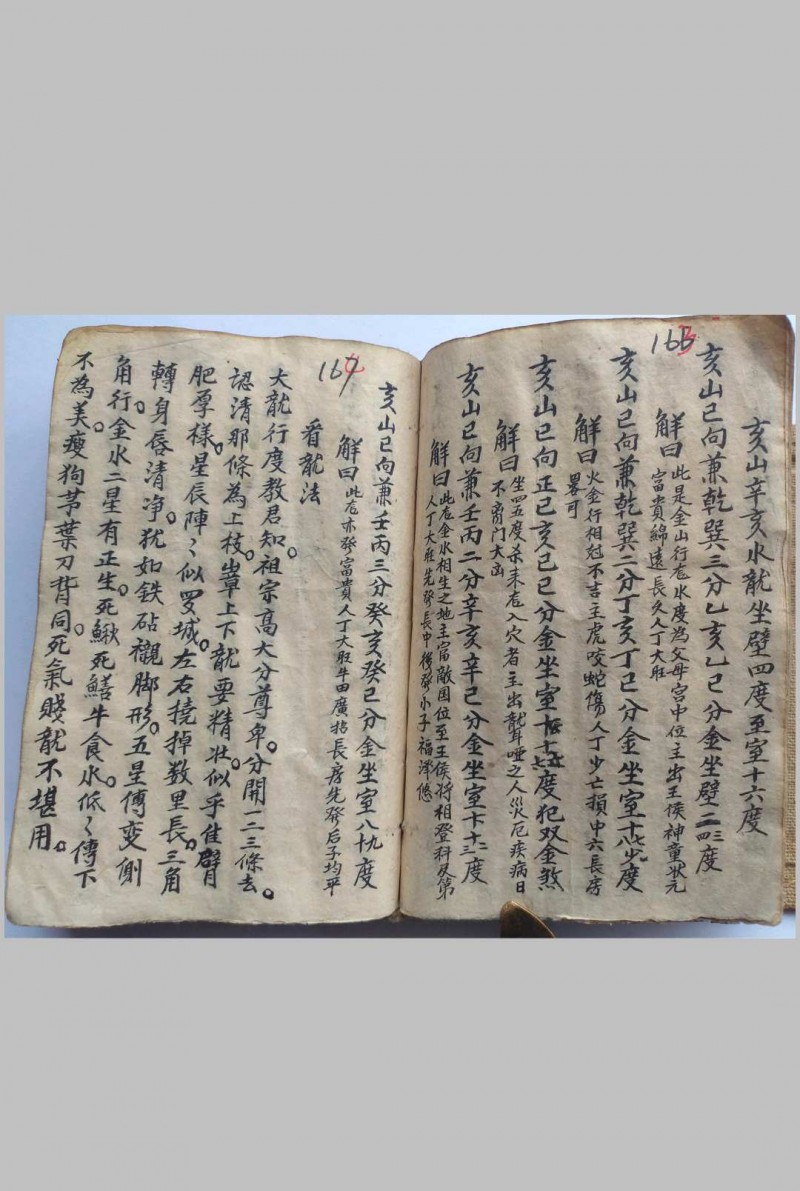 亥山辛亥水龍坐壁四度至室十六度
亥山巳向兼乾巽三分乙亥乙巳分金坐壁二三四度
解曰此是金山行庖水度為父母宮中位主出王侯神童狀元
富貴綿遠長久人丁大旺
亥山巳向兼乾巽二分丁亥丁巳分金坐室十七八度
解曰火金行相尅不吉主虎咬蛇傷人丁少亡損中六長房
畧可
亥山巳向正己亥己巳分金坐室十五度犯双金煞
解曰坐四五度杀来庖入穴者主出聾啞之人災厄疾病日
不离門大凶
亥山巳向兼壬丙二分辛亥辛巳分金坐室十三度
解曰此庖金水相生之地主富敵国位至王侯将相登科及第
人丁大旺先發長中後發小子福澤悠
166
3
亥山巳向兼壬丙三分癸亥癸巳分金坐室八九十度
解曰此庖亦發富貴人丁大旺牛田廣招長房先發后子均平
167
看龍法
大龍行度教君知。祖宗高大分尊卑。分開一二三條去。
認清那條為上枝。崋上下龍要精壮。似乎隹臂
肥厚樣。星辰陣〻似罗城。左右撓掉数里長。三角
轉身唇清净。犹如鉄砧襯脚形。五星傳变側
角行。金水二星有正生。死鰍死鱔牛食水。低〻傳下
不為美。瘦狗茅葉刀背同。死氣賤龍不堪用。